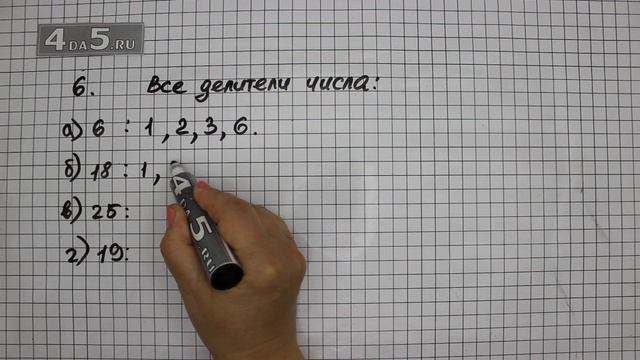 4DA5.RU
6. Все делители числа:
а) 6 : 1, 2, 3, 6.
б) 18 : 1,
в) 25:
г) 19:
4DA5.RU